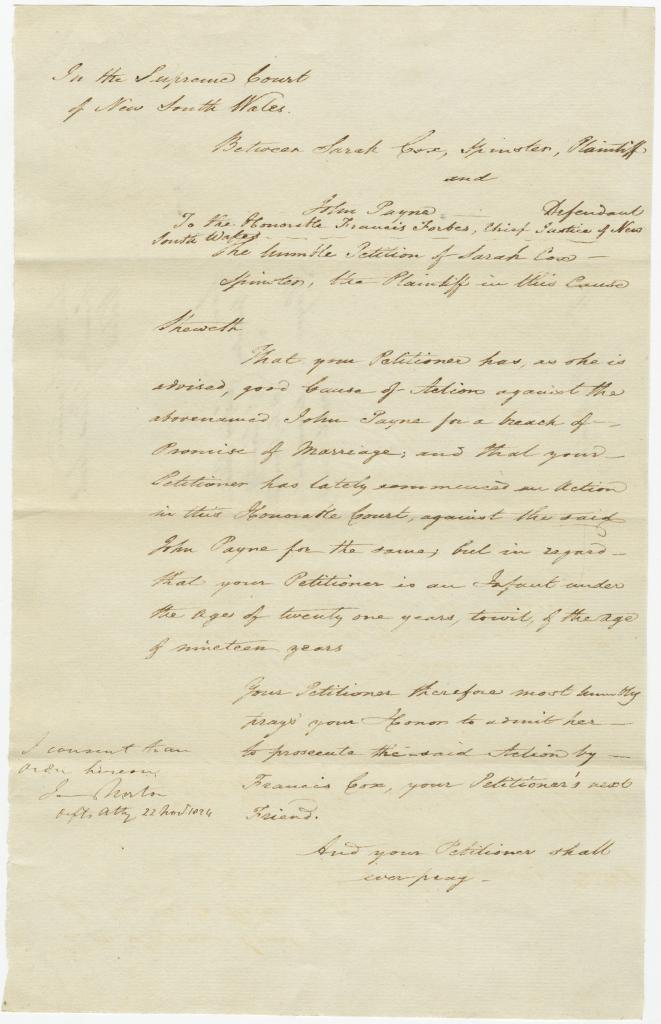 In the Supreme Court
of New South Wales.
Between Sarah Cox, Spinster, Plaintiff
and
John Payne Defendant
To the Honorable Francis Forbes, Chief Justice of New
South Wales
The humble Petition of Sarah Cox
Spinster, the Plaintiff in this Cause
Sheweth
That your Petitioner has, as she is
advised, good Cause of Action against the
abovenamed John Payne for a breach of
Promise of Marriage; and that your
Petitioner has lately commenced an Action
in this Honorable Court, against the said
John Payne for the same; but in regard
that your Petitioner is an Infant under
the age of twenty one years, towit, of the age
of nineteen years
Your Petitioner therefore most humbly
prays your Honor to admit her
to prosecute the said Action by
Francis Cox, your Petitioner's next
Friend.
And your Petitioner shall
ever pray
I consent to an
order hereon
Norton
Defts Atty 22 Novr 1824